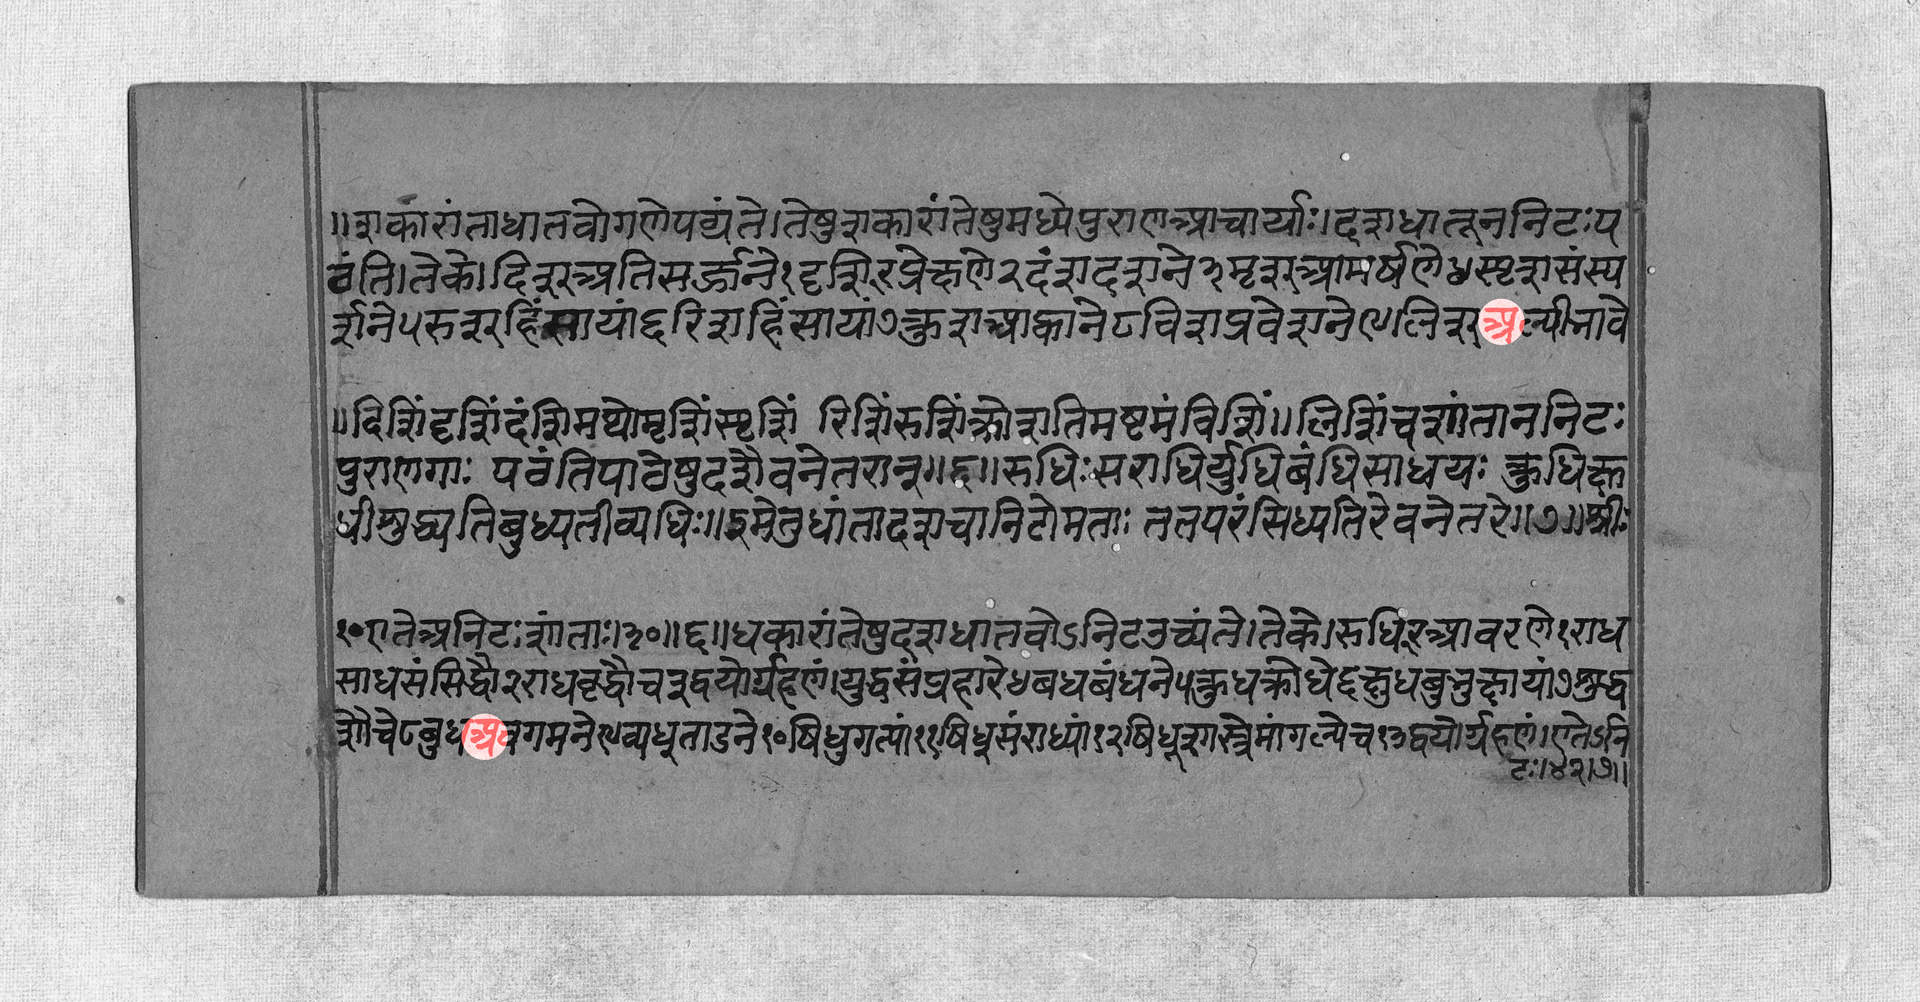 ॥शकारांताधातवोगणेपठ्यंते।तेषुशकारांतेषुमध्येपुराणआचार्याः।दशधातूननिटःप
ठंति।तेके।दिशअतिसर्ज्जने१दृशिरप्रेक्षणे२दंशदशने३मृशआमर्षणे४स्पृशसंस्प
र्शने५रुशहिंसायां६रिशहिंसायां७क्रुशआह्वाने८विशप्रवेशने९लिशअल्पीभावे
॥दिशिंदृशिंदंशिमथोमृशिंस्पृशिं रिशिंरुशिंक्रोशतिमष्टमंविशिं॥लिशिंचशांताननिटः
पुराणगाः पठंतिपाठेषुदशैवनेतरान्॥६॥रुधिःसराधिर्युधिबंधिसाधयः क्रुधिक्षु
धीशुद्ध्यतिबुध्यतीव्यधिः॥इमेतुधांतादशचानिटोमताः ततपरंसिध्यतिरेवनेतरे॥७॥श्रीः
१०एतेअनिटःशांताः।३०॥६॥धकारांतेषुदशधातवोऽनिटउच्यंते।तेके।रुधिरआवरणे१राध
साधसंसिद्धौ२राधवृद्धौचइद्वयोर्ग्रहणं।युद्धसंप्रहारे४बधबंधने५क्रुधक्रोधे६क्षुधबुभुक्षायां७शुद्ध
शौचे८बुधअवगमने९व्यधुताडने१०षिधुगत्यां११षिधुसंराध्यां१२षिधूशास्त्रेमांगल्येच१३द्वयोर्ग्रहणं।एतेऽनि
टः।४२।७॥